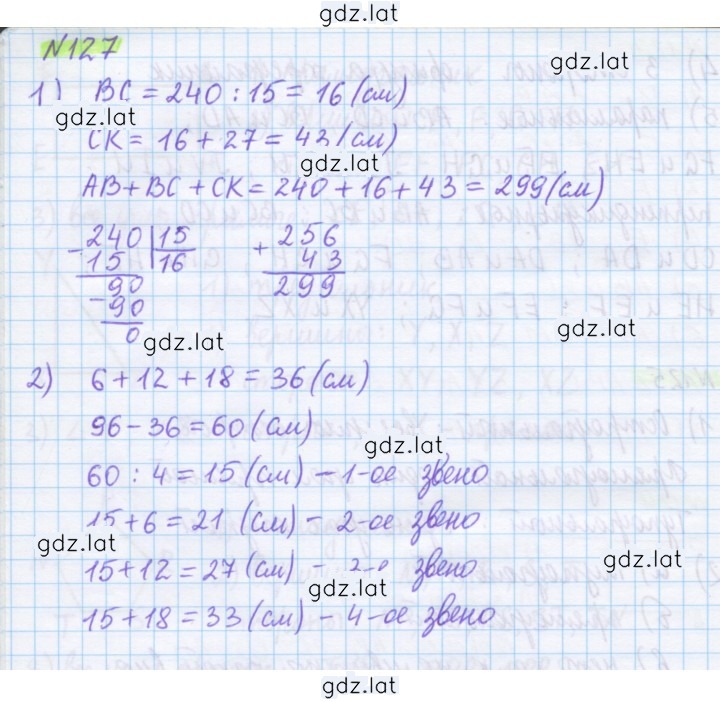 gdz.lat
№127
gdz.lat
1) BC = 240 : 15 = 16 (см)
gdz.lat
CK = 16 + 27 = 43 (см)
gdz.lat
AB + BC + CK = 240 + 16 + 43 = 299 (см)
- 240 | 15
15 | 16
- 90
90
0
+ 256
43
299
gdz.lat
gdz.lat
2) 6 + 12 + 18 = 36 (см)
96 - 36 = 60 (см)
gdz.lat
60 : 4 = 15 (см) - 1-ое звено
15 + 6 = 21 (см) - 2-ое звено
gdz.lat
15 + 12 = 27 (см) - звено
gdz.lat
gdz.lat
15 + 18 = 33 (см) - 4-ое звено
gdz.lat